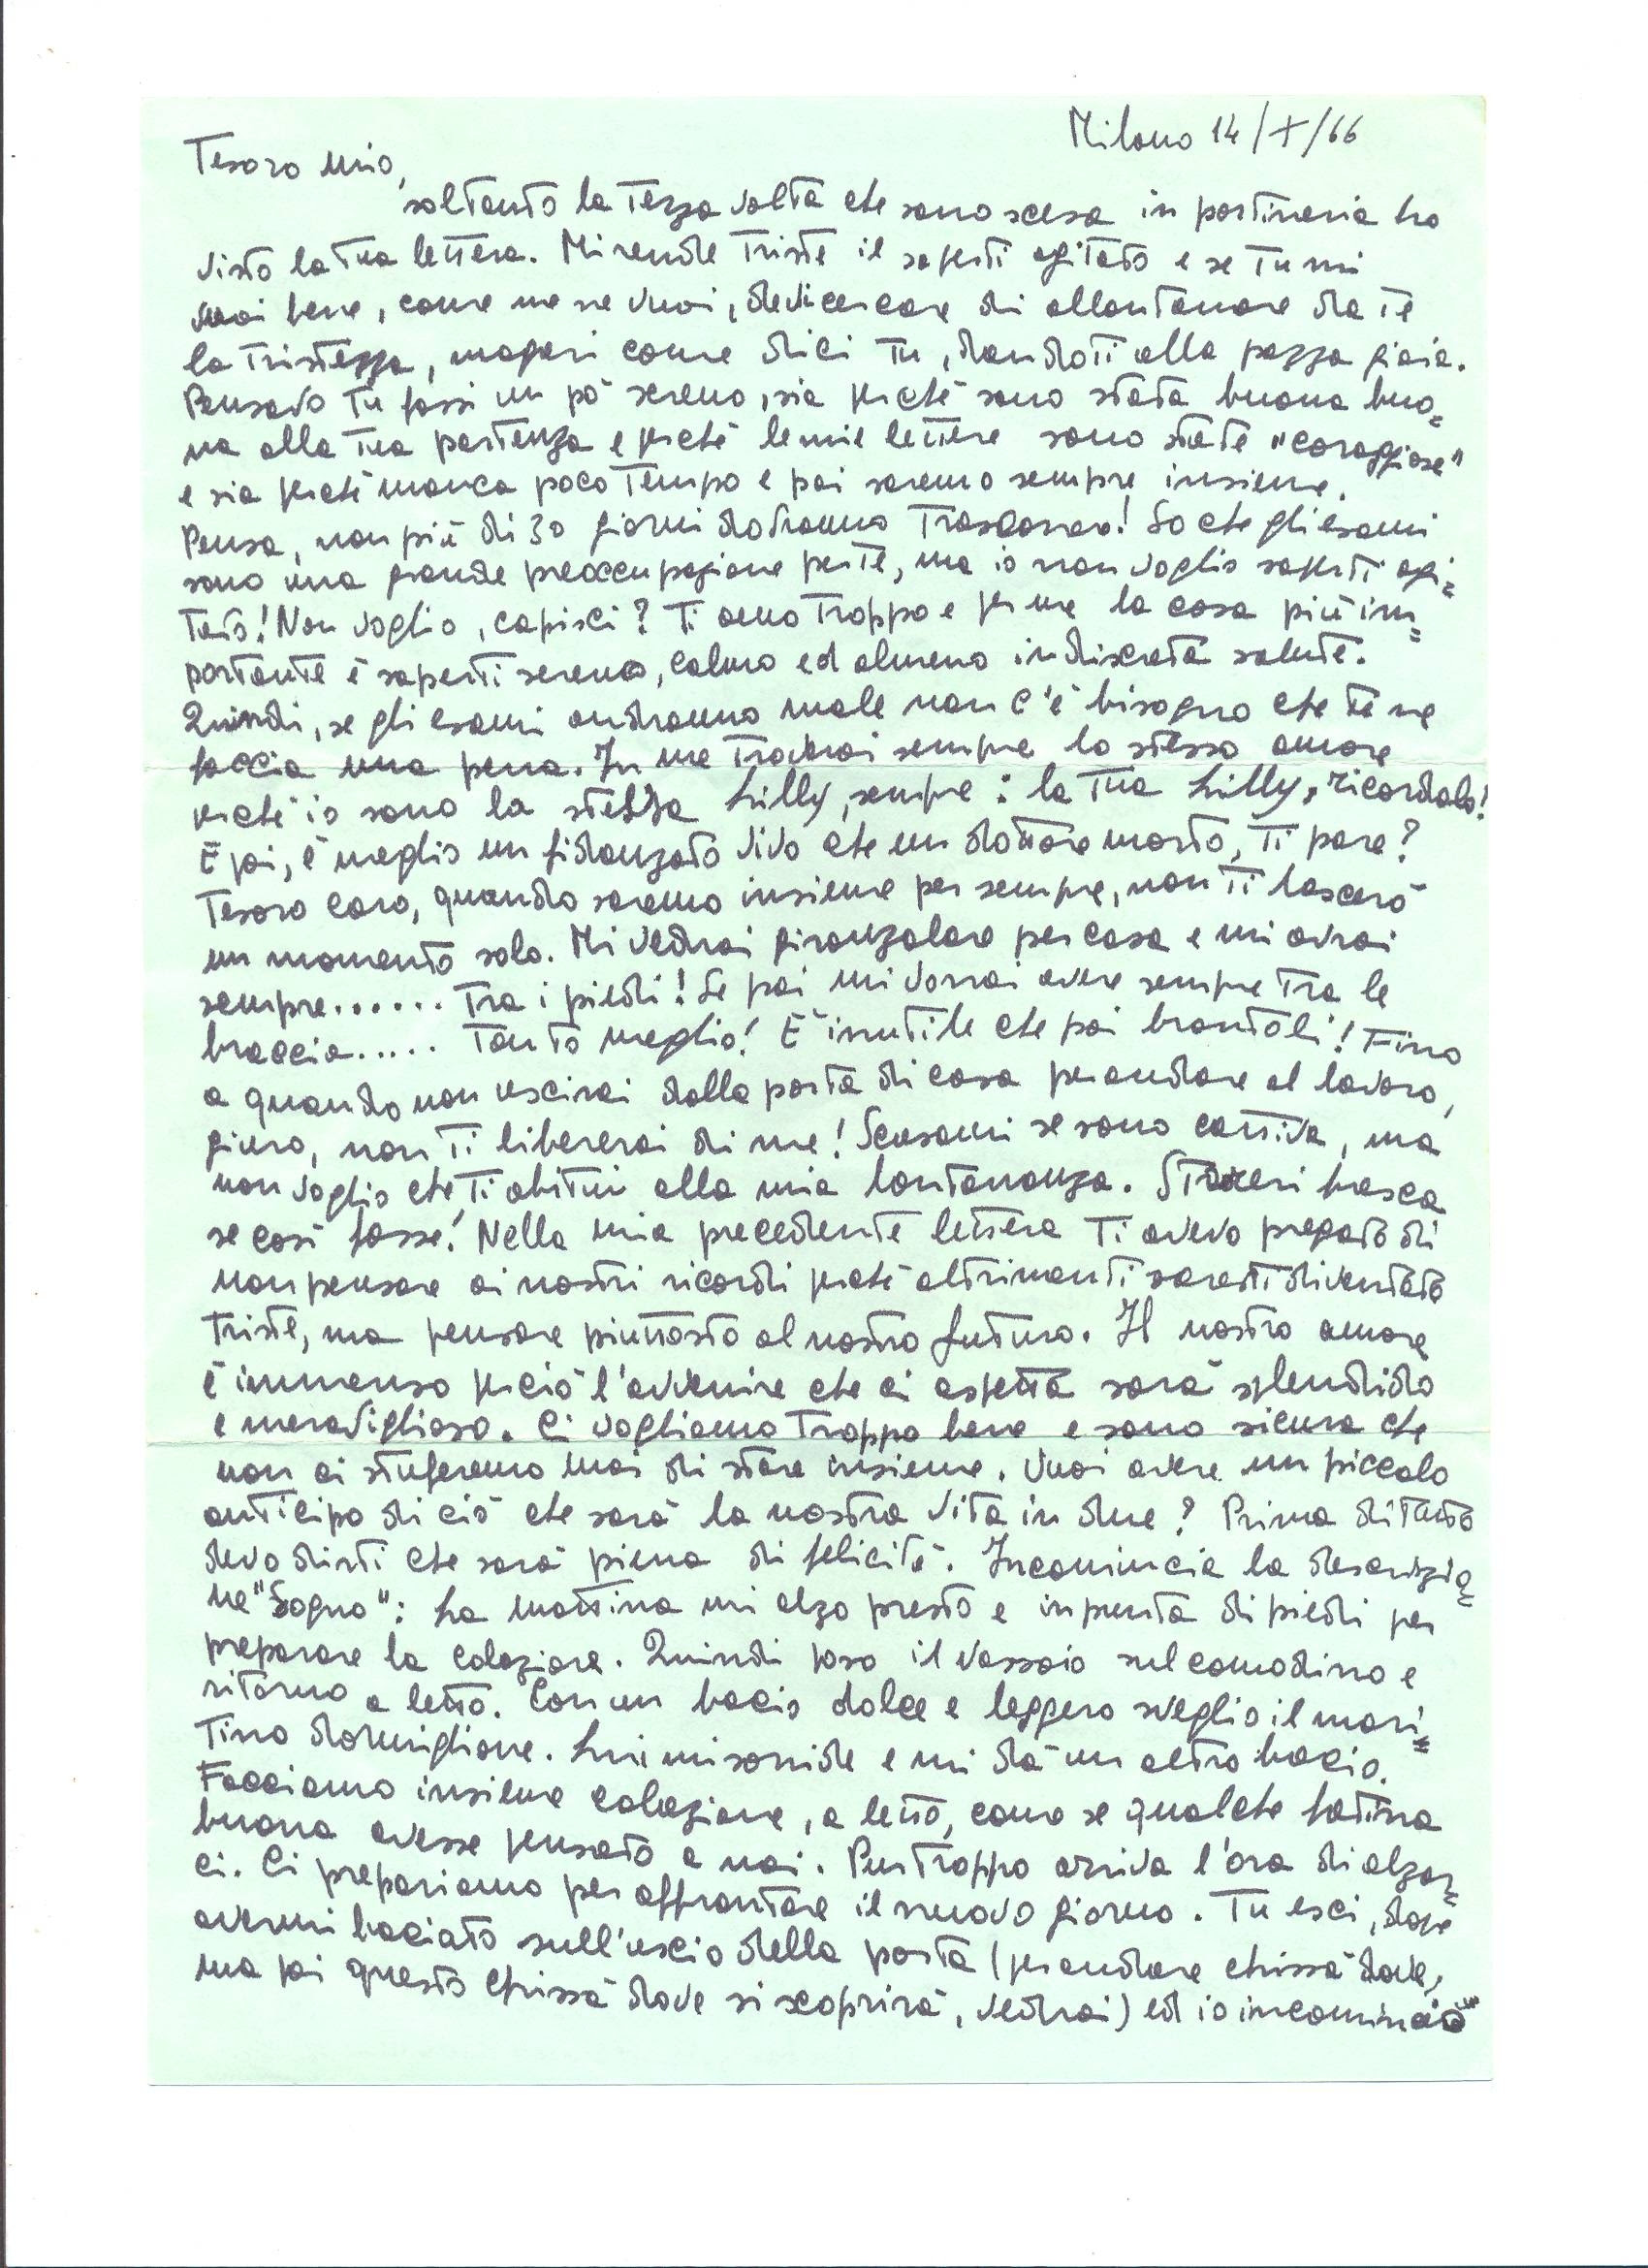 Milano 14/X/66
Tesoro mio,
soltanto la terza volta che sono scesa in portineria ho
visto la tua lettera. Mi rende triste il saperti agitato e se tu mi
vuoi bene, come me ne vuoi, devi cercare di allontanare da te
la tristezza, magari come dici tu, dandoti alla pazza gioia.
Pensavo tu fossi un pò sereno, sia perché sono stata buona buo=
na alla tua partenza e perché le mie lettere sono state "coraggiose"
e sia perché manca poco tempo e poi saremo sempre insieme.
Pensa, non più di 30 giorni dovranno trascorrere! So che gli esami
sono una grande preoccupazione per te, ma io non voglio saperti agi=
tato! Non voglio, capisci? Ti amo troppo e per me la cosa più im=
portante è saperti sereno, calmo ed almeno in discreta salute.
Quindi, se gli esami andranno male non c'è bisogno che te ne
faccia una pena. In me troverai sempre lo stesso amore
perché io sono la stessa Lilly, sempre: la tua Lilly, ricordalo!
E poi, è meglio un fidanzato vivo che un dottore morto, ti pare?
Tesoro caro, quando saremo insieme per sempre, non ti lascerò
un momento solo. Mi vedrai gironzolare per casa e mi avrai
sempre...... tra i piedi! Se poi mi vorrai avere sempre tra le
braccia..... tanto meglio! È inutile che poi brontoli! Fino
a quando non uscirai dalla porta di casa per andare al lavoro,
giuro, non ti libererai di me! Scusami se sono cattiva, ma
non voglio che ti abitui alla mia lontananza. Starei fresca
se così fosse! Nella mia precedente lettera ti avevo pregato di
non pensare ai nostri ricordi perché altrimenti saresti diventato
triste, ma pensare piuttosto al nostro futuro. Il nostro amore
è immenso perciò l'avvenire che ci aspetta sarà splendido
e meraviglioso. Ci vogliamo troppo bene e sono sicura che
non ci stuferemo mai di stare insieme. Vuoi avere un piccolo
anticipo di ciò che sarà la nostra vita in due? Prima di tutto
devo dirti che sarà piena di felicità. Incomincia la descrizio=
ne "Sogno": La mattina mi alzo presto e in punta di piedi per
preparare la colazione. Quindi poso il vassoio sul comodino e
ritorno a letto. Con un bacio dolce e leggero sveglio il mari=
tino dormiglione. Lui mi sorride e mi dà un altro bacio.
Facciamo insieme colazione, a letto, come se qualche fatina
buona avesse pensato a noi. Purtroppo arriva l'ora di alzar=
ci. Ci prepariamo per affrontare il nuovo giorno. Tu esci, dopo
avermi baciato sull'uscio della porta (per andare chissà dove,
ma poi questo chissà dove si scoprirà, vedrai) ed io incomincio